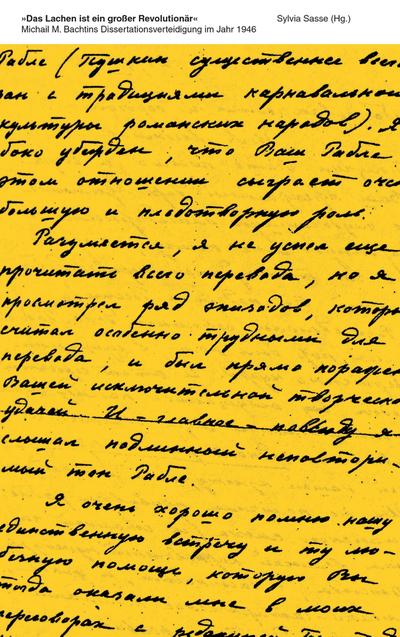 »Das Lachen ist ein großer Revolutionär«
Sylvia Sasse (Hg.)
Michail M. Bachtins Dissertationsverteidigung im Jahr 1946
Рабле (Пушкин существенное всего
зан с традициями карнавальной
культуры романских народов). Я
боко убежден, что Ваш Рабле
этом отношении сыграет оче
большую и плодотворную роль.
Разумеется, я не успел еще
прочитать всего перевода, но я
просмотрел ряд эпизодов, которы
считал особенно трудными для
перевода, и был прямо поражен
Вашей исключительной творческо
удачей И – главное – повсюду я
слышал подлинный неповтори-
мый тон Рабле.
Я очень хорошо помню нашу
единственную встречу и ту лю-
безную помощь, которую Вы
тогда оказали мне в моих
переговорах с редакцией